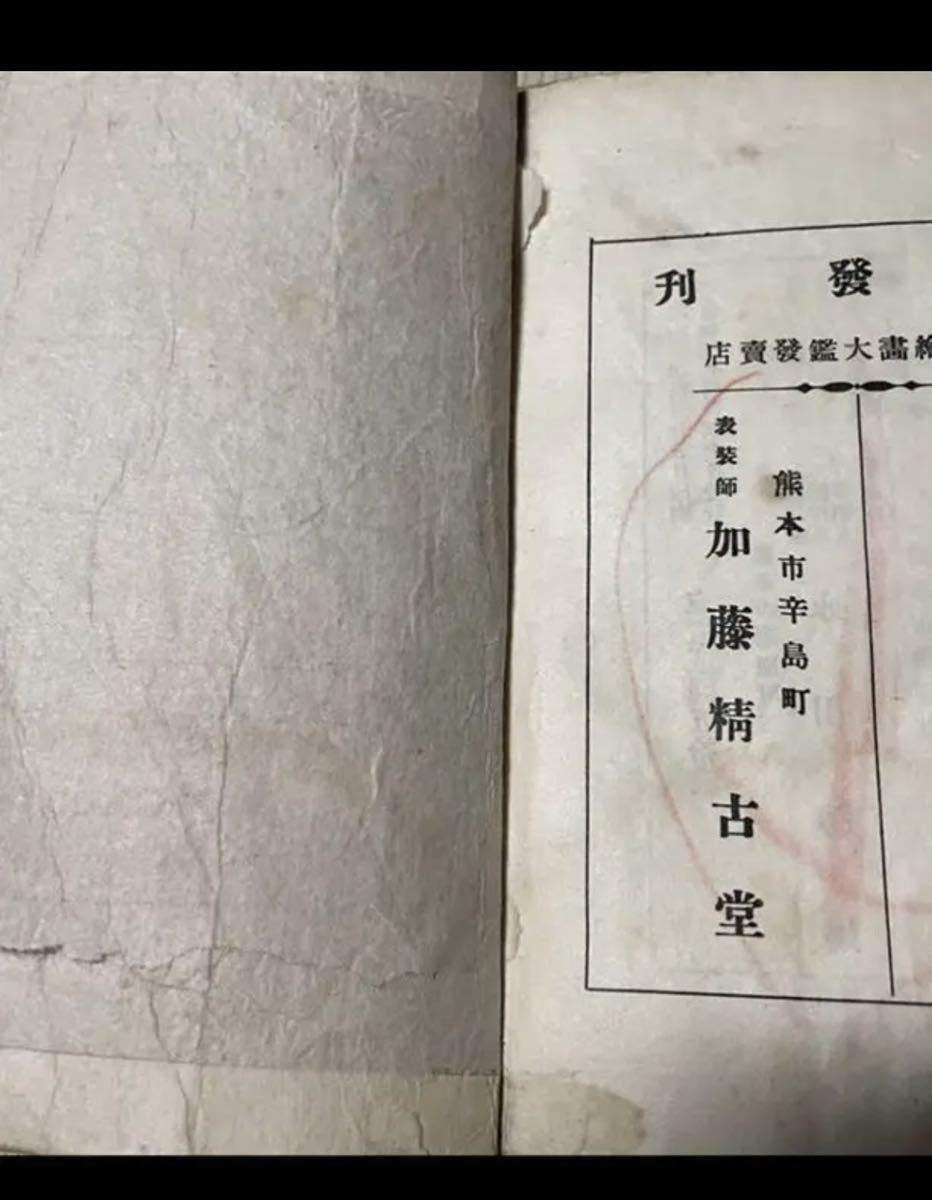 發刊
繪畵大鑑發賣店
熊本市辛島町
表裝師 加藤精古堂